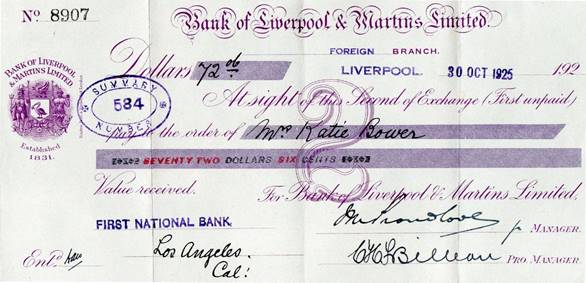 No 8907
Bank of Liverpool & Martins Limited.
FOREIGN BRANCH.
Dollars 72 06
LIVERPOOL. 30 OCT 1925 192
BANK OF LIVERPOOL & MARTINS LIMITED
Established 1831.
SUMMARY
584
NUMBER
At sight of this Second of Exchange (First unpaid)
pay to the order of Mrs Katie Bower
SEVENTY TWO DOLLARS SIX CENTS
2
Value received. For Bank of Liverpool & Martins Limited,
FIRST NATIONAL BANK.
MANAGER.
Los Angeles.
Cal:
Entd
PRO. MANAGER.